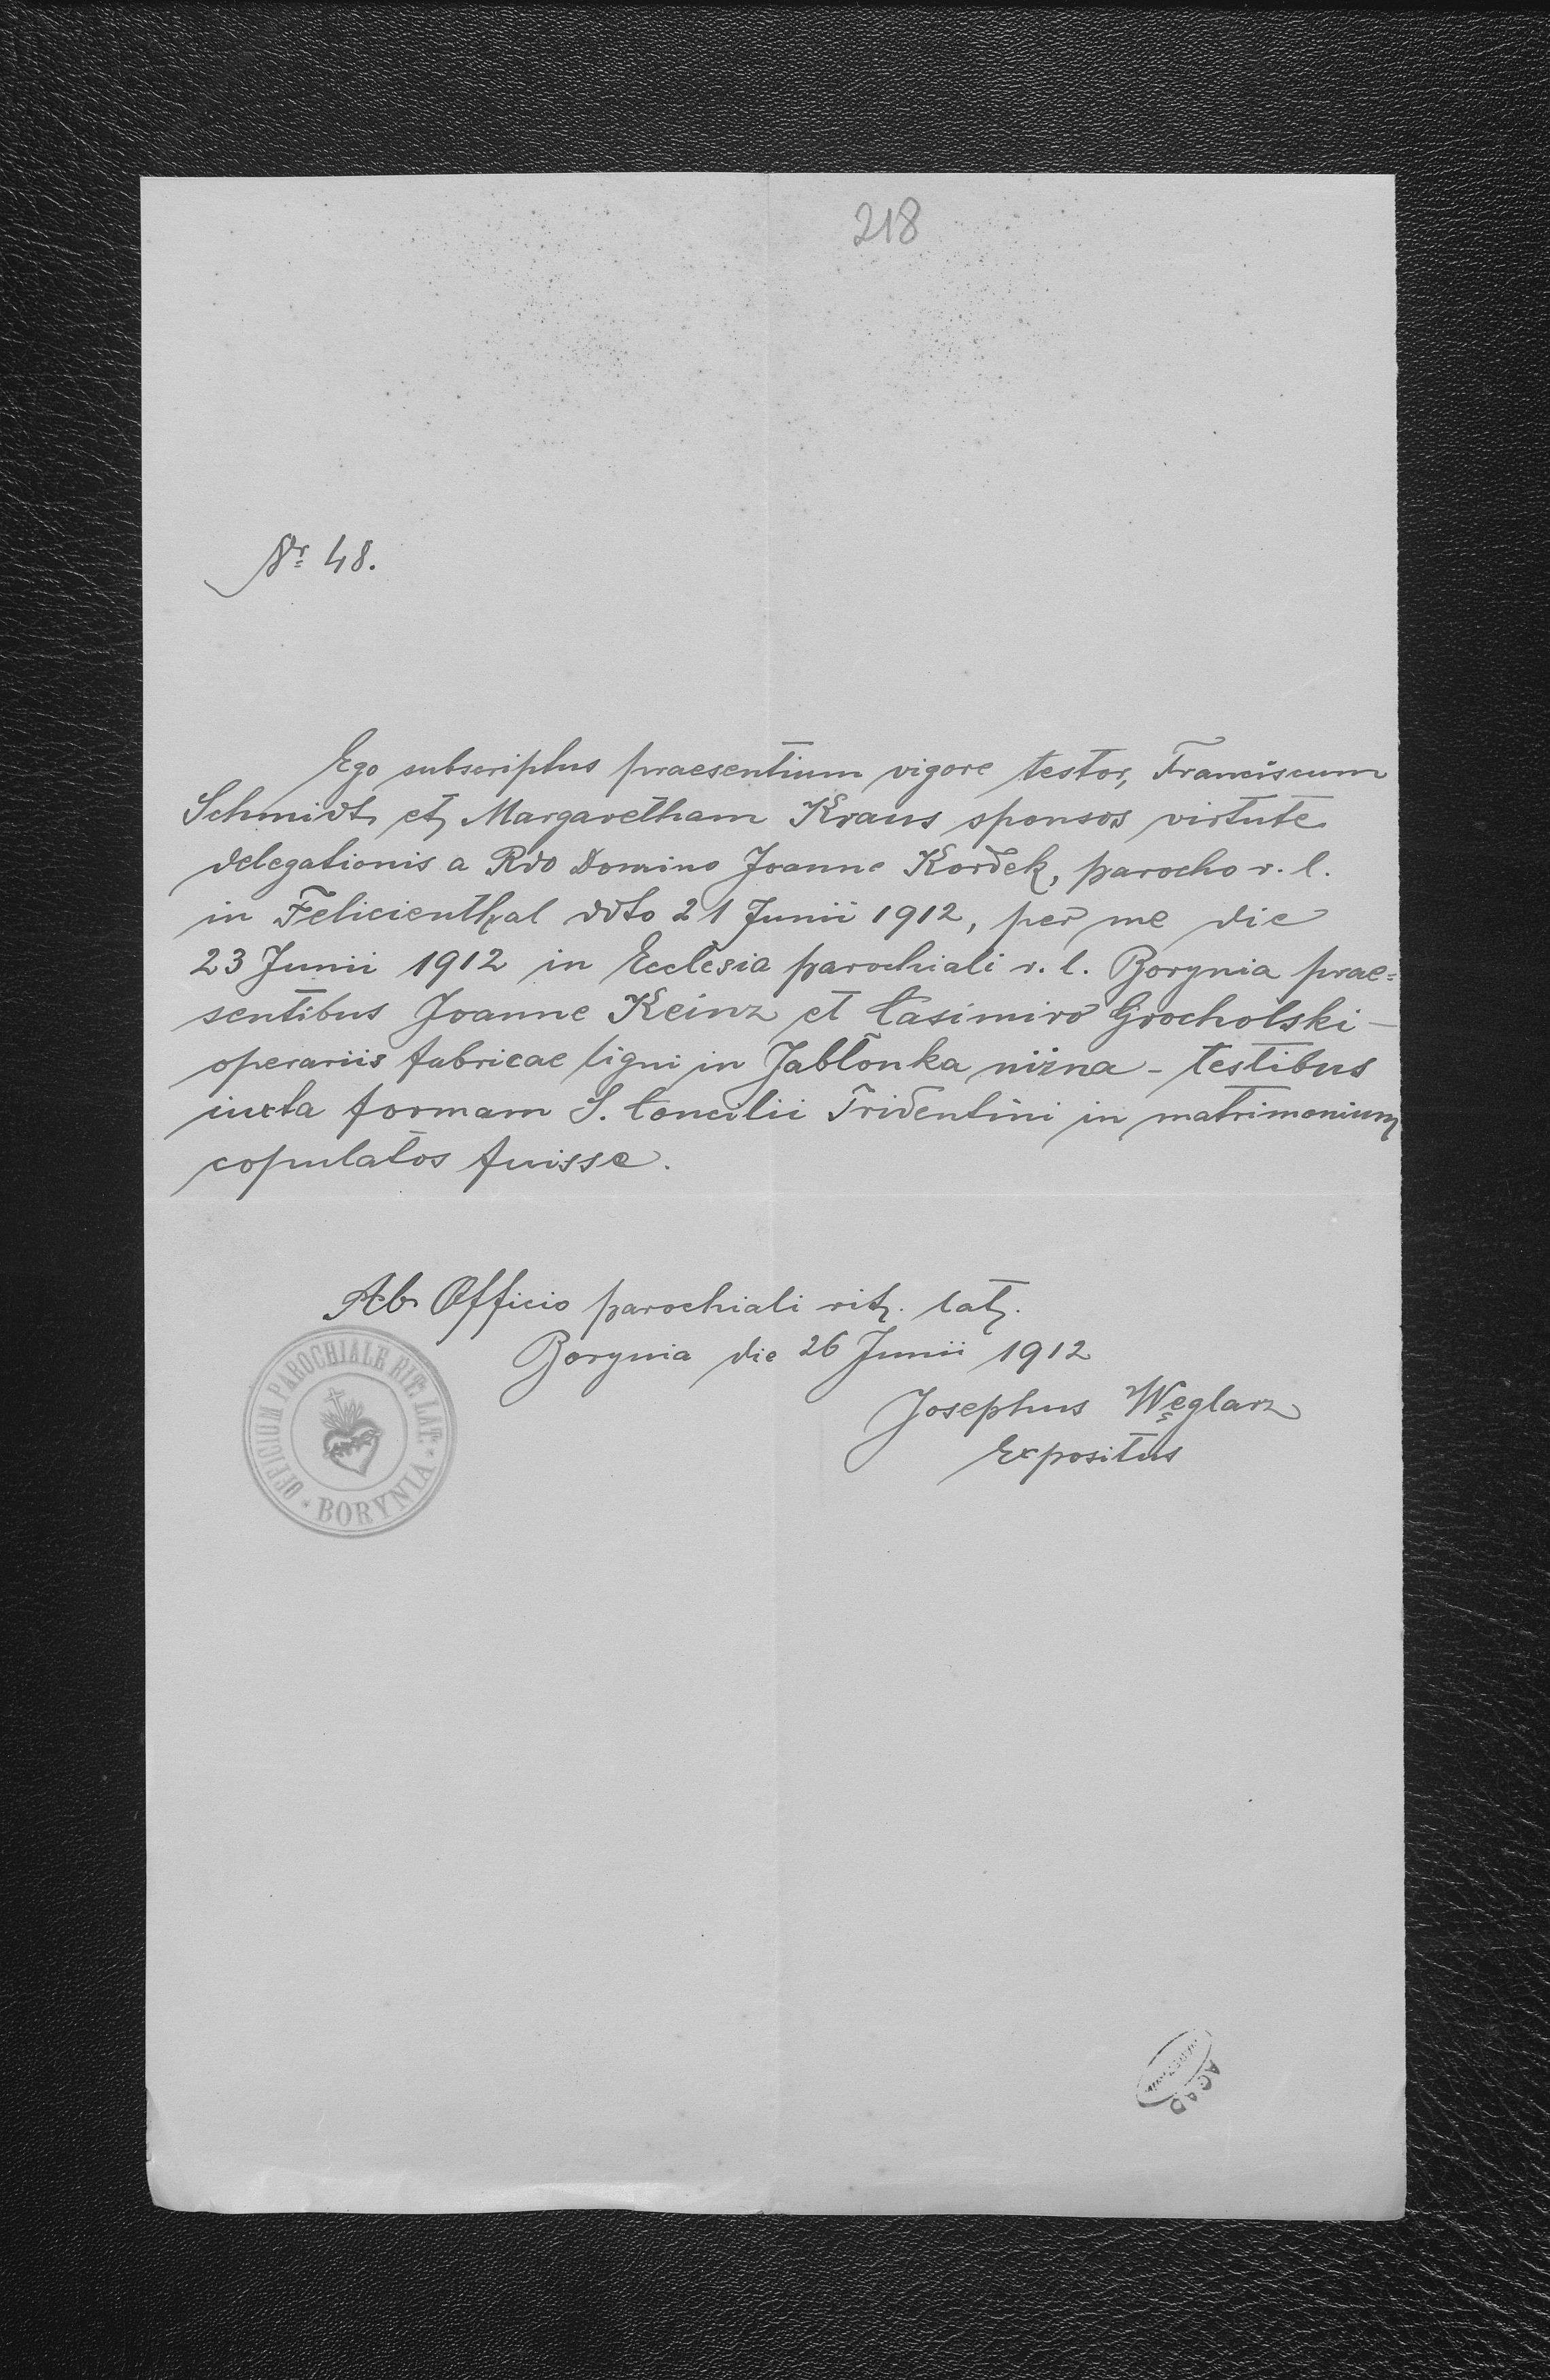 218
Nr 48.
Ego subscriptus praesentium vigore testor, Franciscum
Schmidt et Margaretham Kraus sponsos virtute
delegationis a Rdo Domino Joanne Kordek, parocho r. l.
in Felicienthal ddto 21 Junii 1912, per me die
23 Junii 1912 in Ecclesia parochiali r. l. Borynia prae=
sentibus Joanne Keinz et Casimiro Grocholski –
operariis fabricae ligni in Jabłonka niżna – testibus
iuxta formam S. Concilii Tridentini in matrimonium
copulatos fuisse.
Ab Officio parochiali rit. lat.
Borynia die 26 Junii 1912
Josephus Węglarz
Expositus
OFFICIUM PAROCHIALE RIT. LAT. BORYNIA
AGAD